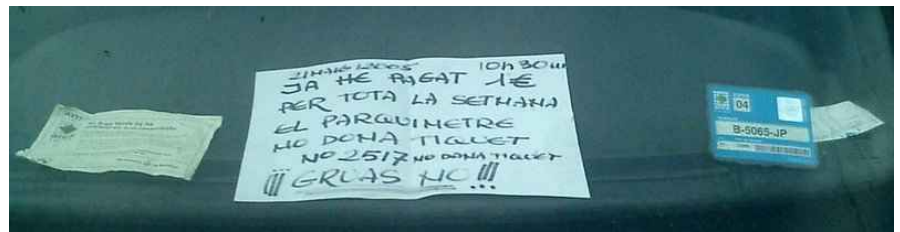 21 MAIG 2005 10h 30m
JA HE PAGAT 1€
PER TOTA LA SETMANA
EL PARQUIMETRE
NO DONA TIQUET
Nº 2517 NO DONA TIQUET
¡¡¡GRUAS NO!!!...
04
B-5065-JP